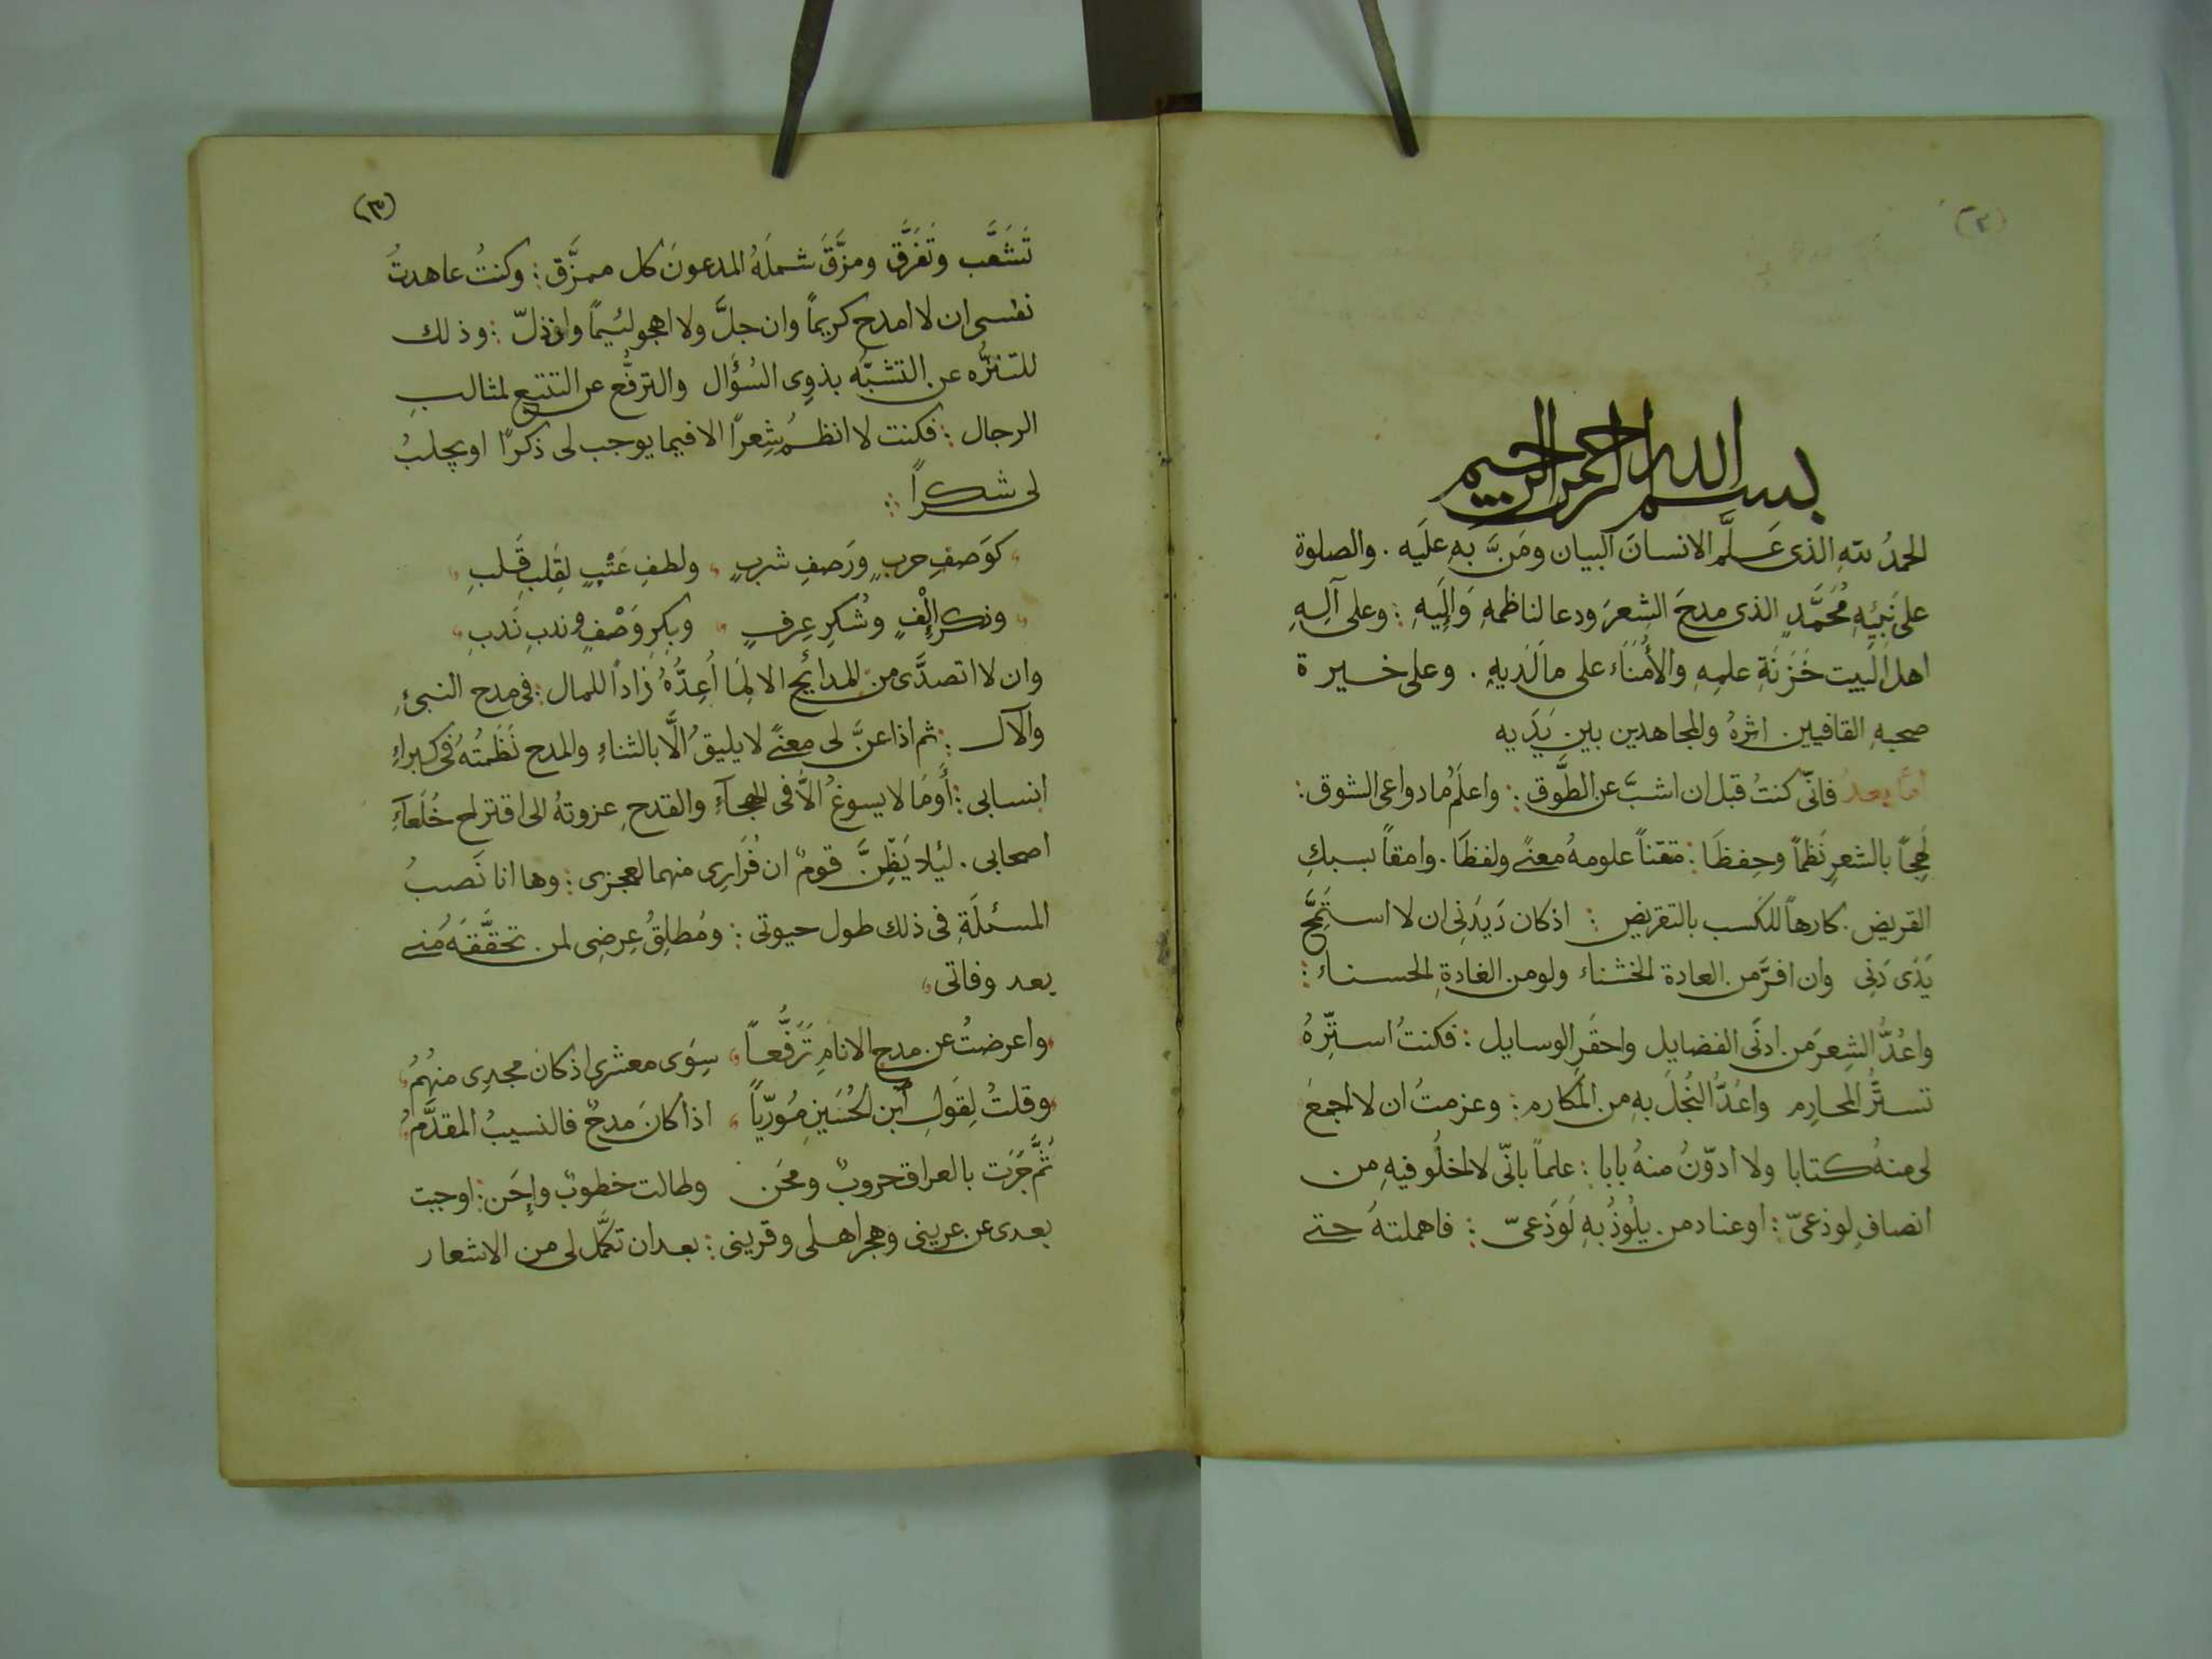 (٢)
بسم الله الرحمن الرحيم
الحمدُ للهِ الذى عَلَّم الانسانَ البيان ومَنَّ بهِ علَيه . والصلوة
على نَبِيّهِ مُحَمَّدٍ الذى مدحَ الشِعرَ ودعا لناظمهِ وَاِلَيهِ : وعلى آلِهِ
اهل البَيت خَزَنَةِ علمِهِ والأُمَنَاء على مالَدَيهِ . وعلى خسيرة
صحبهِ القافيين اثرهُ والمجاهدين بين يَدَيه
امّا بعدُ فانّى كنتُ قبل ان اشبَّ عن الطَّوق : واعلَمُ ما دواعى الشوق :
لَهِجًا بالشعرِ نَظمًا وحِفظَا : متقنًا علومهُ معنًے ولفظَا . وامقًا بسبكِ
القريض . كارهًا للكسب بالتقريض : اذكان دَيدَنى ان لا استَمِحَّ
يَدَى دَنِى وان افرَّ من العادة الخشناء ولومن الغادةِ الحسناء :
واعُدُّ الشِعرَ من ادنَى الفضايل واحقَرِ الوسايل : فكنتُ استرّهُ
تسَتُّرُ المحارِم واعُدُّ البُخلَ بهِ من المَكارم : وعزمتُ ان لا اجمعَ
لى منهُ كتابا ولا ادوّنُ منهُ بابا : علماً بانّى لا اخلُو فيهِ من
انصافِ لوذعىّ : اوعناد من يلُوذُ بهِ لَوَذعىّ : فاهملتهُ حتے
(٣)
تَشَعَّب وَتَفَرَّق ومزَّقَ شملَهُ المدعونَ كل ممزَّق : وكنتُ عاهدتُ
نفسى ان لا امدح كريمًا وان جلَّ ولا اهجو لئيمًا وان ذلّ : وذلك
للتنزُّه عن التشبّه بذوى السُؤَال والترفُّع عن التتبع لمثالبِ
الرجال : فكنت لا انظمُ شِعرًا الا فيما يوجب لى ذكرًا او يجلبُ
لى شكرًا :
كوَصفِ حربٍ ورَصفِ شربٍ ولطفِ عَتْبٍ لِقَلبِ قَلبِ
وذكر اِلْفٍ وشُكرِ عِرفٍ وبِكرِ وَصْفٍ وندبِ نَدبِ
وان لا اتصدَّى من المدايح الا لِمَا اُعِدُّهُ زادًا للمال : فى مدح النبىِ
والآل : ثم اذا عنَّ لى معنًے لا يليقُ الَّا بالثناءِ والمدح نَظَمتُهُ فى كبراءِ
انسابى : أَومَا لا يسوغُ الاَّ فى الهجآءِ والقدحِ عزوتهُ الى اقتراح خُلَعَآءِ
اصحابى . ليئلا يَظِنَّ قومٌ ان فُرارِى منهما لعجزى : وها انا نَصبُ
المسئلَةِ فى ذلك طول حيوتى : ومُطلِقُ عِرضِى لمن تحقَّقَهُ منے
بعد وفاتى
واعرضتُ عن مدحِ الانامِ تَرَفُّعًا سِوَى معشرى اذكان مجدِى منهُمُ
وقلتُ لِقَولِ ابن الحُسَينِ مُوَرّيًا اذا كانَ مدحٌ فالنسيبُ المقدَّمُ
ثمَّ جَرَت بالعراق حروبٌ ومحَن وطالت خطوبٌ وإحَن : اوجبت
بعدى عن عرينى وهجر اهلى وقرينى : بعد ان تكمَّل لى من الاشعار